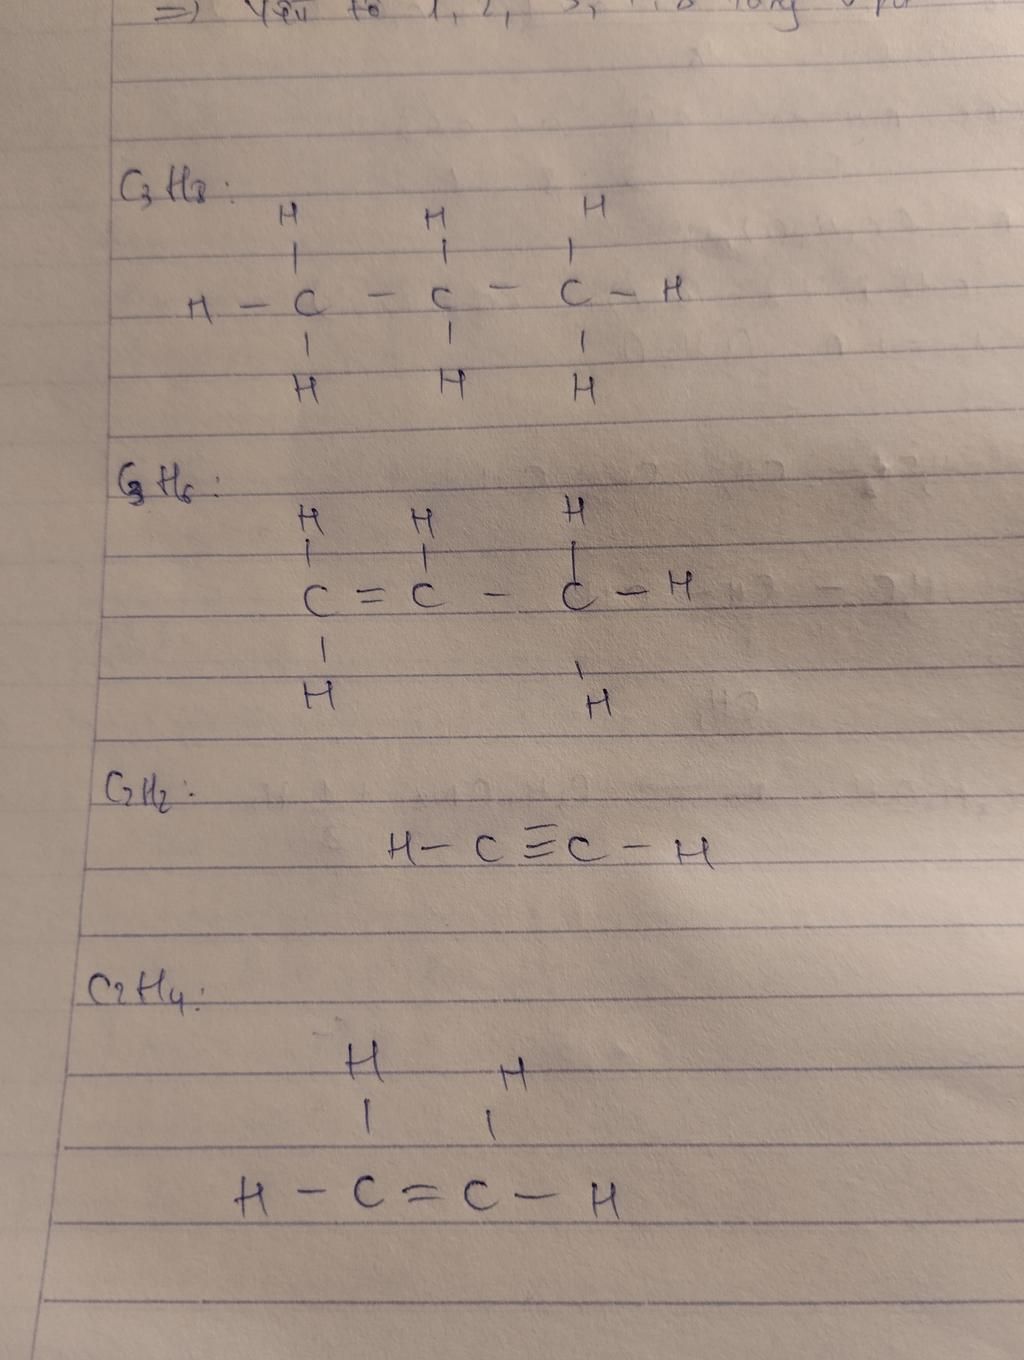 =) Yếu tố 1, 2, 3,
C3H8:
H H H
H - C - C - C - H
H H H
C3H6:
H H H
C = C - C - H
H H
C2H2:
H - C ≡ C - H
C2H4:
H H
H - C = C - H